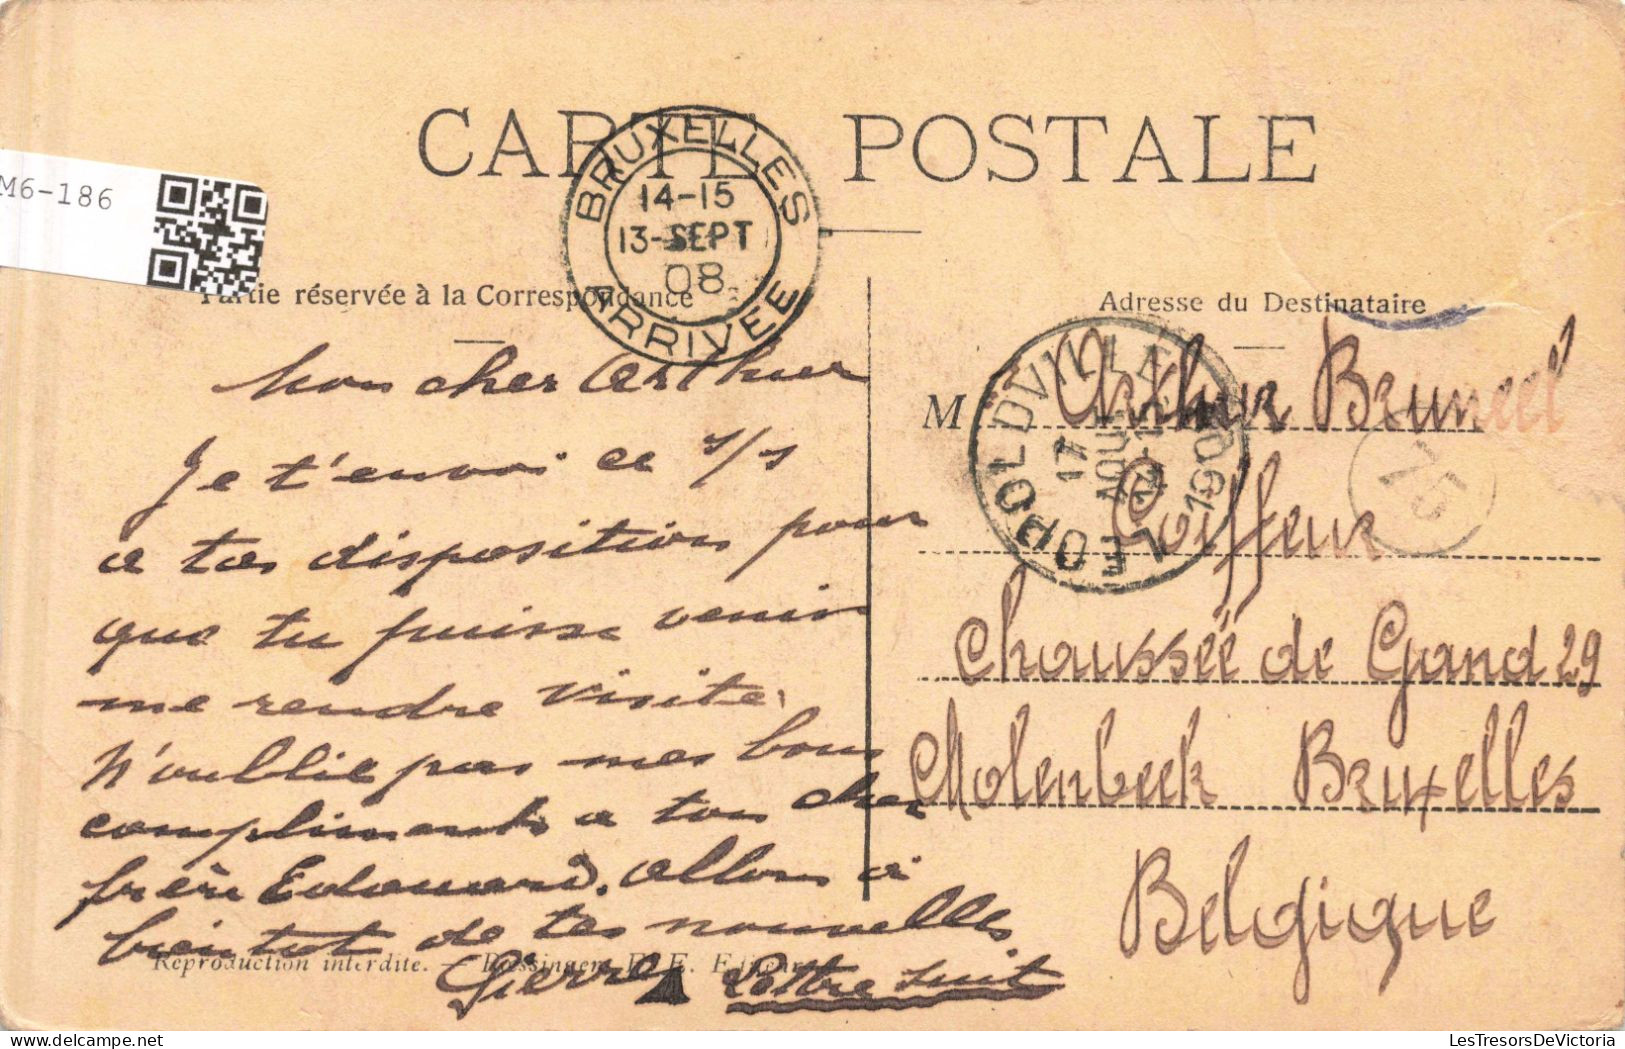 CARTE POSTALE
M6-186
BRUXELLES
14-15
13-SEPT
08
ARRIVEE
Partie réservée à la Correspondance
Adresse du Destinataire
LEOPOLDVILLE
17
AOUT
1908
75
Mon cher Arthur
Je t'envoi ce s/s
a tas disposition pour
que tu puisse venir
me rendre visite.
N'oublie pas mes bons
compliments a ton cher
frère Edouard. Allons à
bientot de tes nouvelles.
Pierre Lettre suit
Reproduction interdite.
M Arthur Bruneel
Coiffeur
Chaussée de Gand 29
Molenbeek Bruxelles
Belgique
LesTresorsDeVictoria - delcampe.net